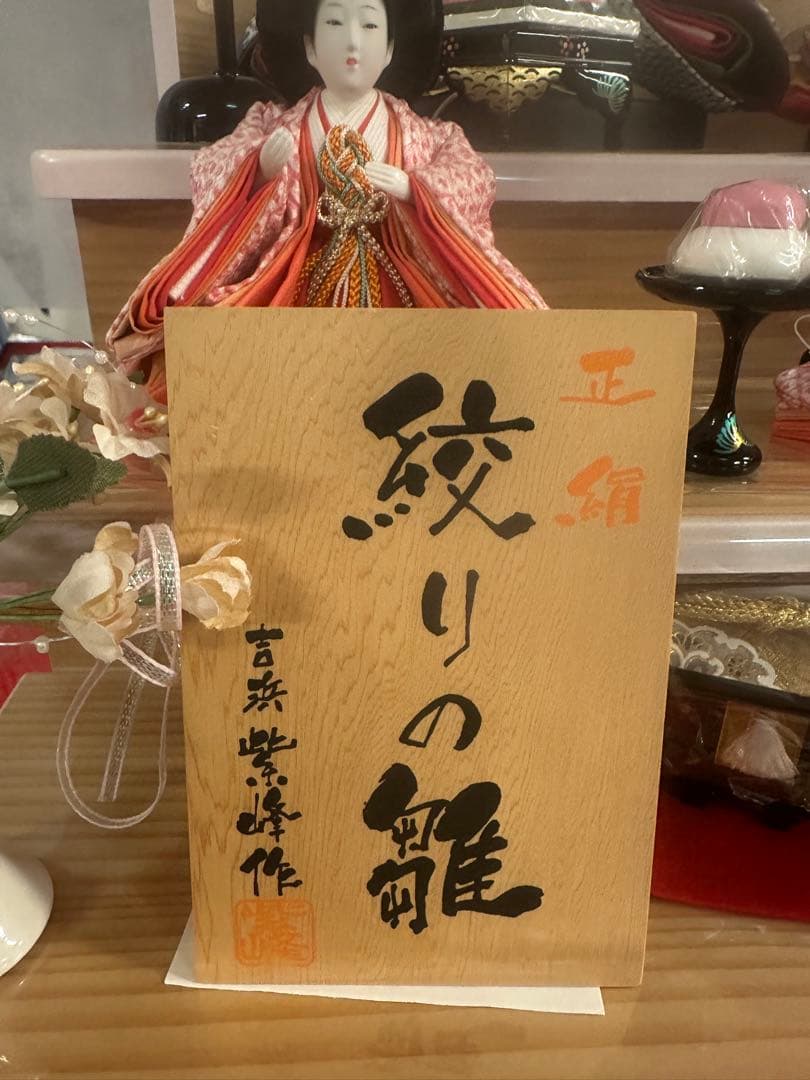 正絹
絞りの雛
吉浜 紫峰作